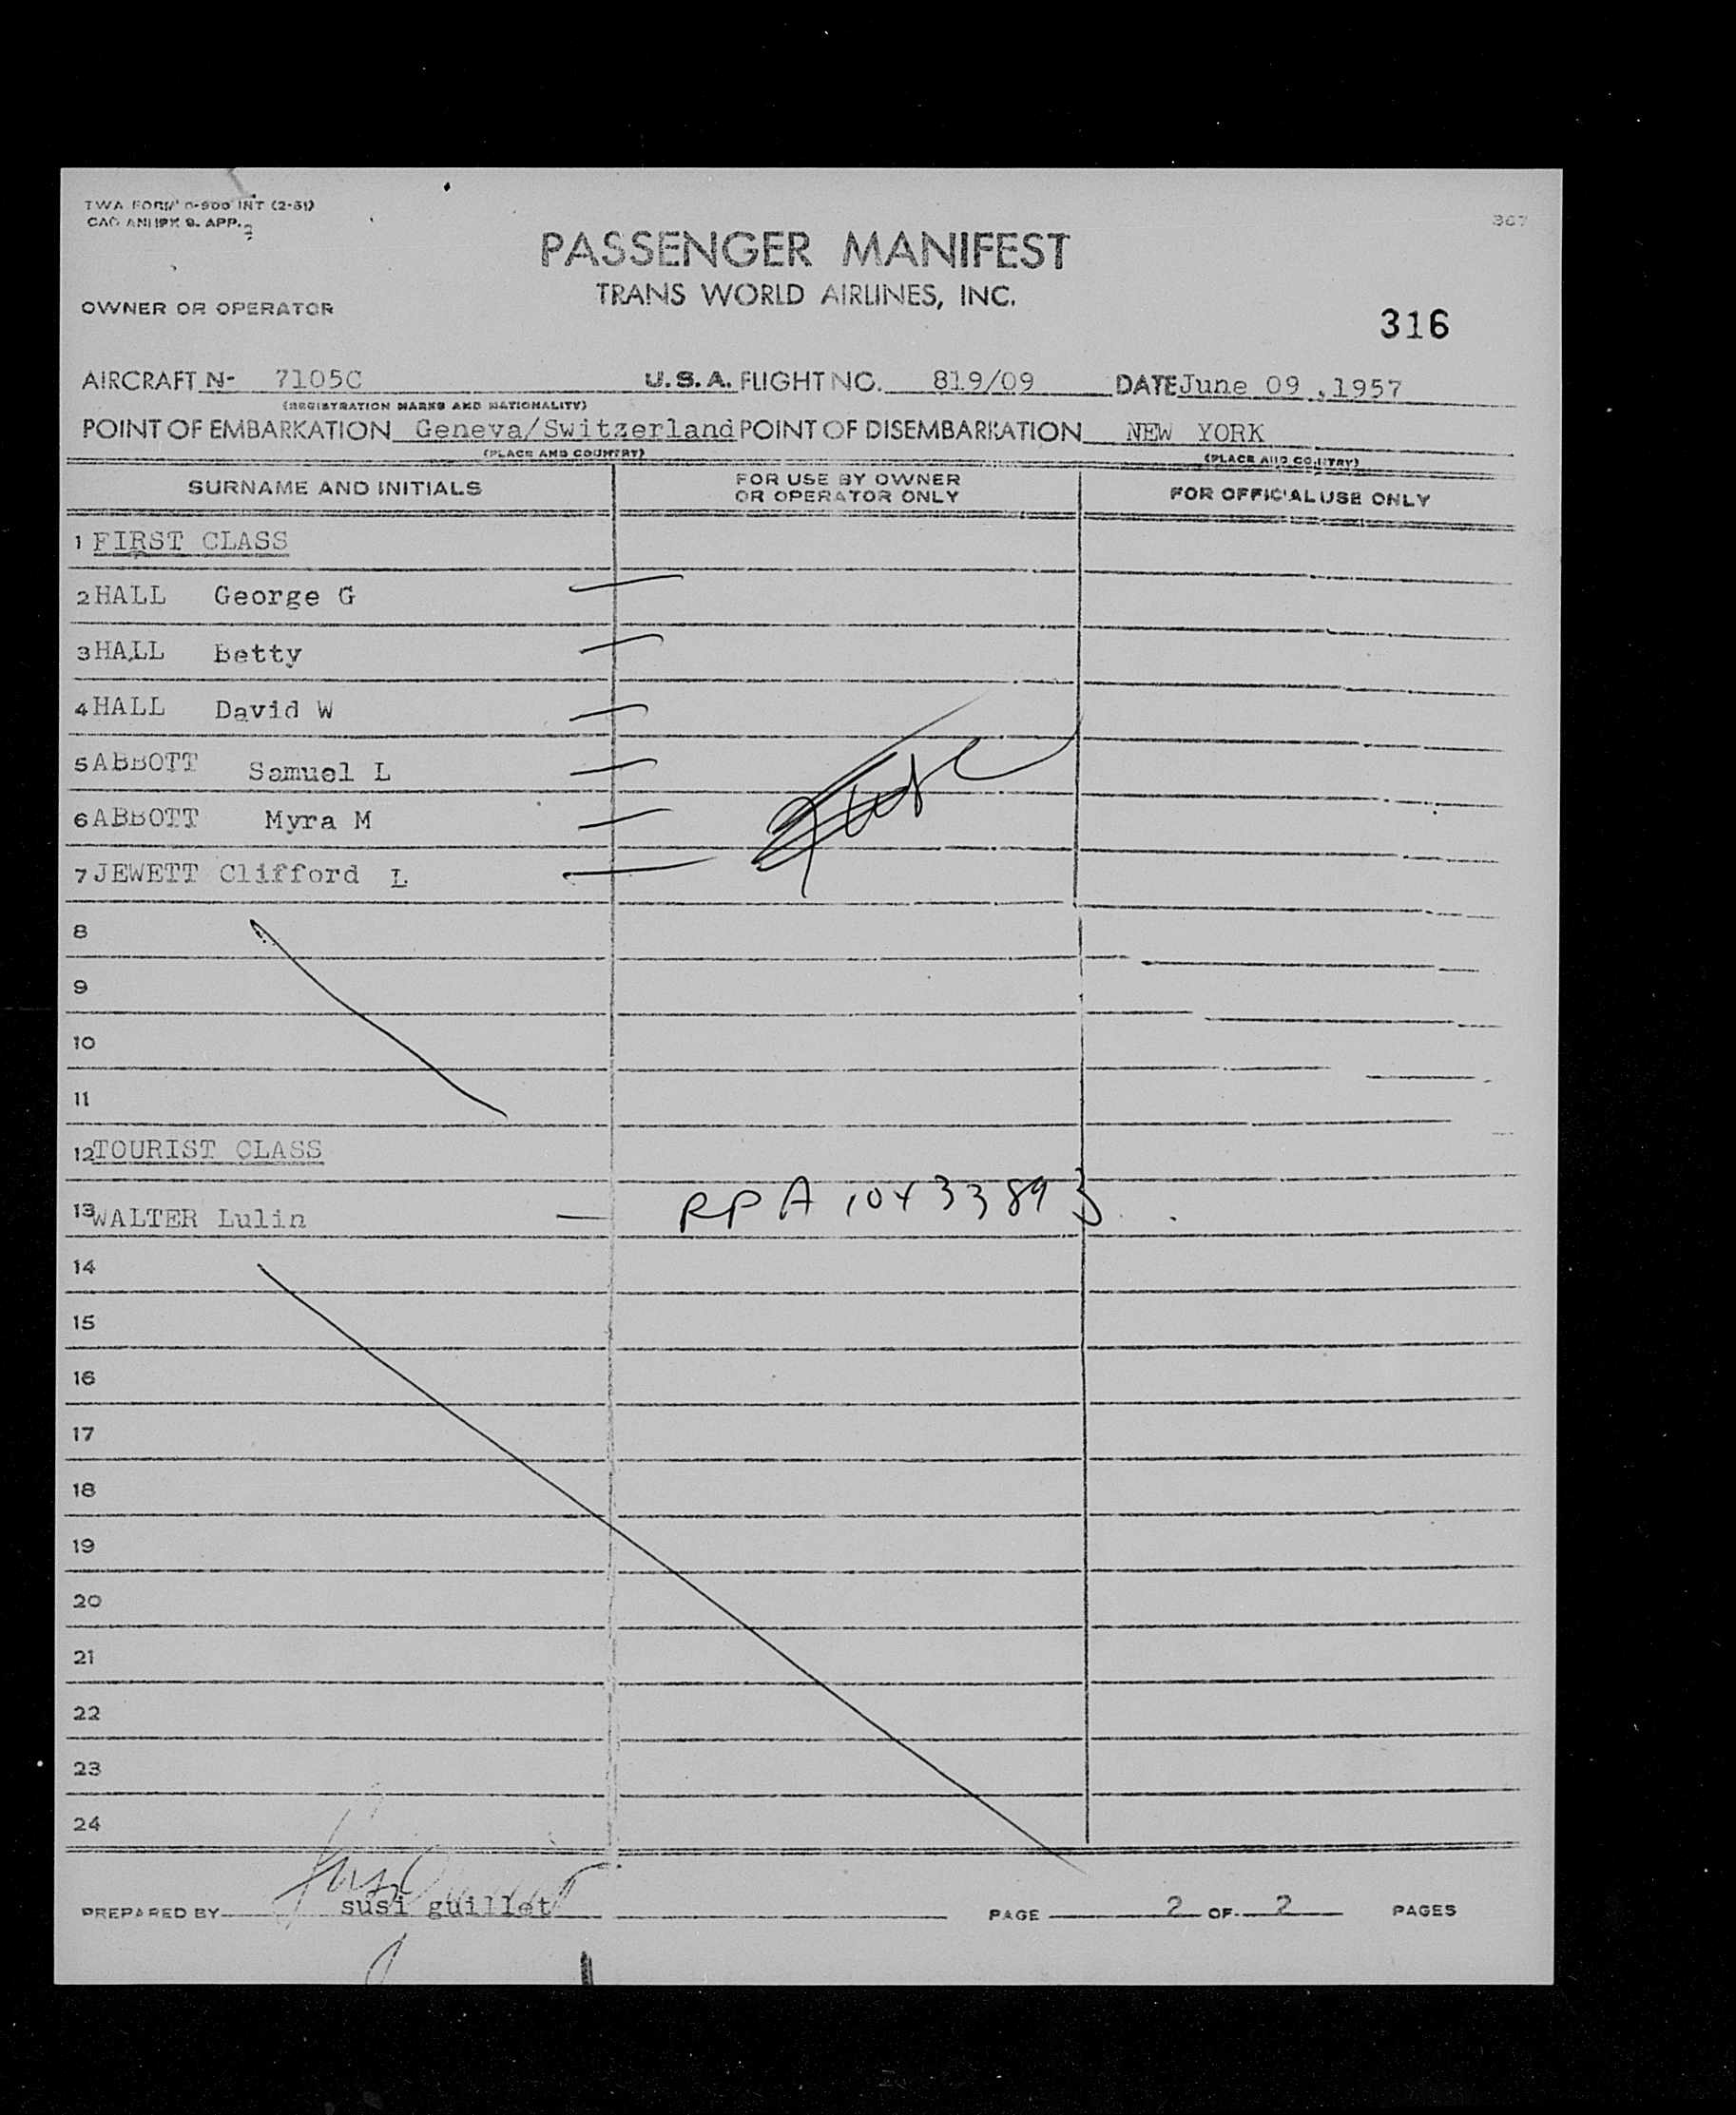 TWA FORM 0-900 INT (2-51)
CAO ANNEX 9. APP. 3
367
PASSENGER MANIFEST
TRANS WORLD AIRLINES, INC.
OWNER OR OPERATOR
316
AIRCRAFT N- 7105C U.S.A. FLIGHT NO. 819/09 DATE June 09 ,1957
(REGISTRATION MARKS AND NATIONALITY)
POINT OF EMBARKATION Geneva/Switzerland POINT OF DISEMBARKATION NEW YORK
(PLACE AND COUNTRY) (PLACE AND COUNTRY)
SURNAME AND INITIALS FOR USE BY OWNER OR OPERATOR ONLY FOR OFFICIAL USE ONLY
1 FIRST CLASS
2 HALL George G
3 HALL Betty
4 HALL David W
5 ABBOTT Samuel L
6 ABBOTT Myra M
7 JEWETT Clifford L
8
9
10
11
12 TOURIST CLASS
13 WALTER Lulin — RPA 10433893
14
15
16
17
18
19
20
21
22
23
24
PREPARED BY susi guillet PAGE 2 OF 2 PAGES